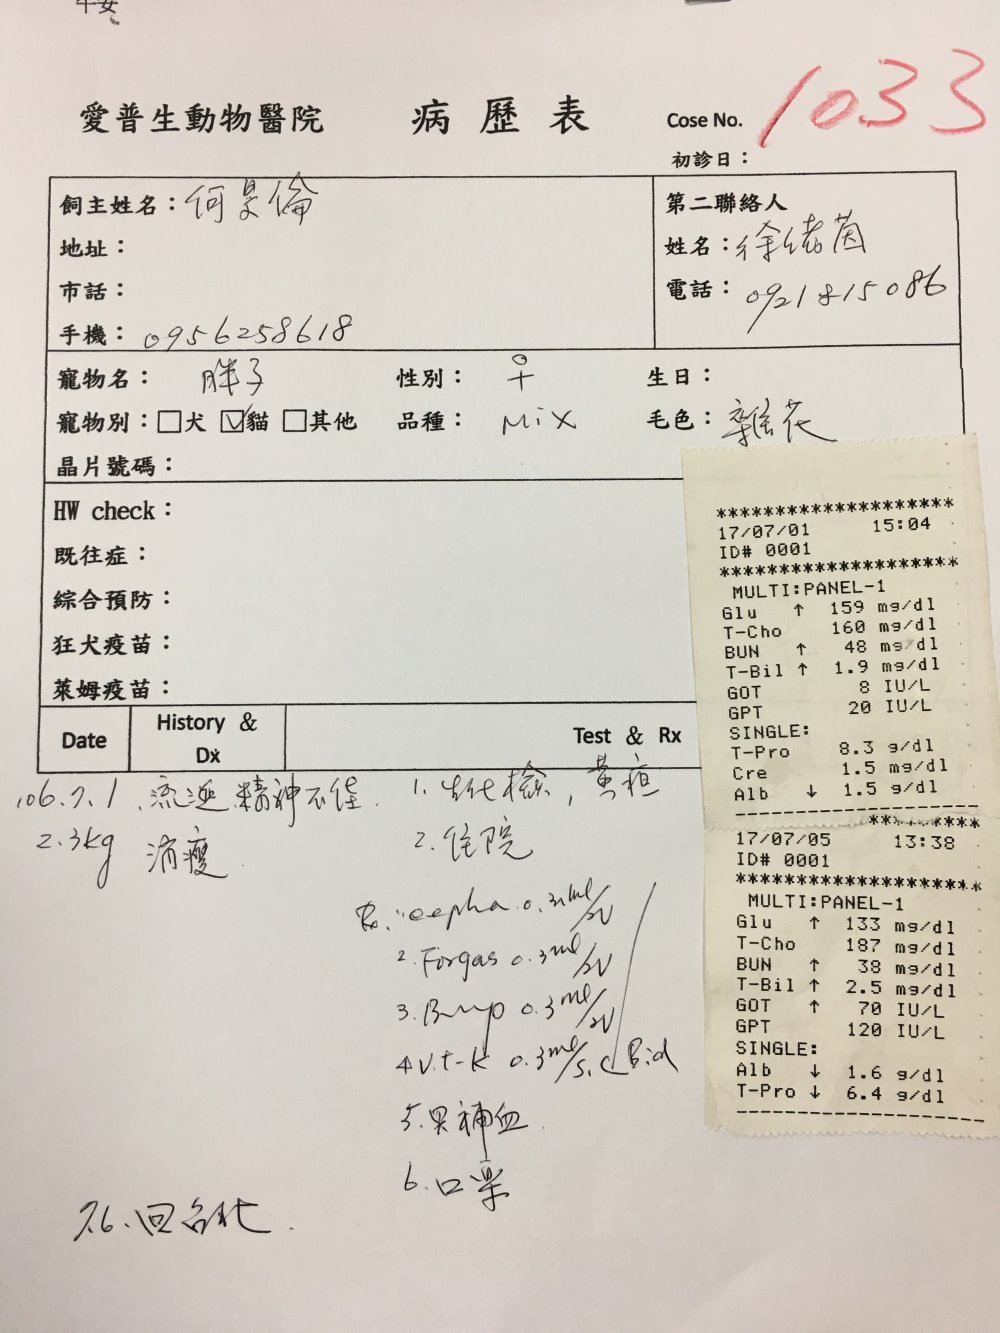 愛普生動物醫院 病歷表 Cose No. 1033
初診日：
飼主姓名：何昊倫
地址：
市話：
手機：0956258618
第二聯絡人
姓名：徐緒茵
電話：0921815086
寵物名：胖子 性別：♀ 生日：
寵物別：□犬 ☑貓 □其他 品種：Mix 毛色：雜花
晶片號碼：
HW check：
既往症：
綜合預防：
狂犬疫苗：
萊姆疫苗：
Date History & Dx Test & Rx
106.7.1 流涎.精神不佳. 1. 生化檢, 黃疸
2.3kg 消瘦. 2. 住院
Rx: 1. cepha 0.3ml/IV
2. Forgas 0.3ml/IV
3. 0.3ml/IV
4. Vit-K 0.3ml/s.c Bid
5. 補血
6. 口
7.6. 回台北.
********************
17/07/01 15:04
ID# 0001
********************
MULTI:PANEL-1
Glu ↑ 159 mg/dl
T-Cho 160 mg/dl
BUN ↑ 48 mg/dl
T-Bil ↑ 1.9 mg/dl
GOT 8 IU/L
GPT 20 IU/L
SINGLE:
T-Pro 8.3 g/dl
Cre 1.5 mg/dl
Alb ↓ 1.5 g/dl
--------------------
17/07/05 13:38
ID# 0001
********************
MULTI:PANEL-1
Glu ↑ 133 mg/dl
T-Cho 187 mg/dl
BUN ↑ 38 mg/dl
T-Bil ↑ 2.5 mg/dl
GOT ↑ 70 IU/L
GPT 120 IU/L
SINGLE:
Alb ↓ 1.6 g/dl
T-Pro ↓ 6.4 g/dl
--------------------